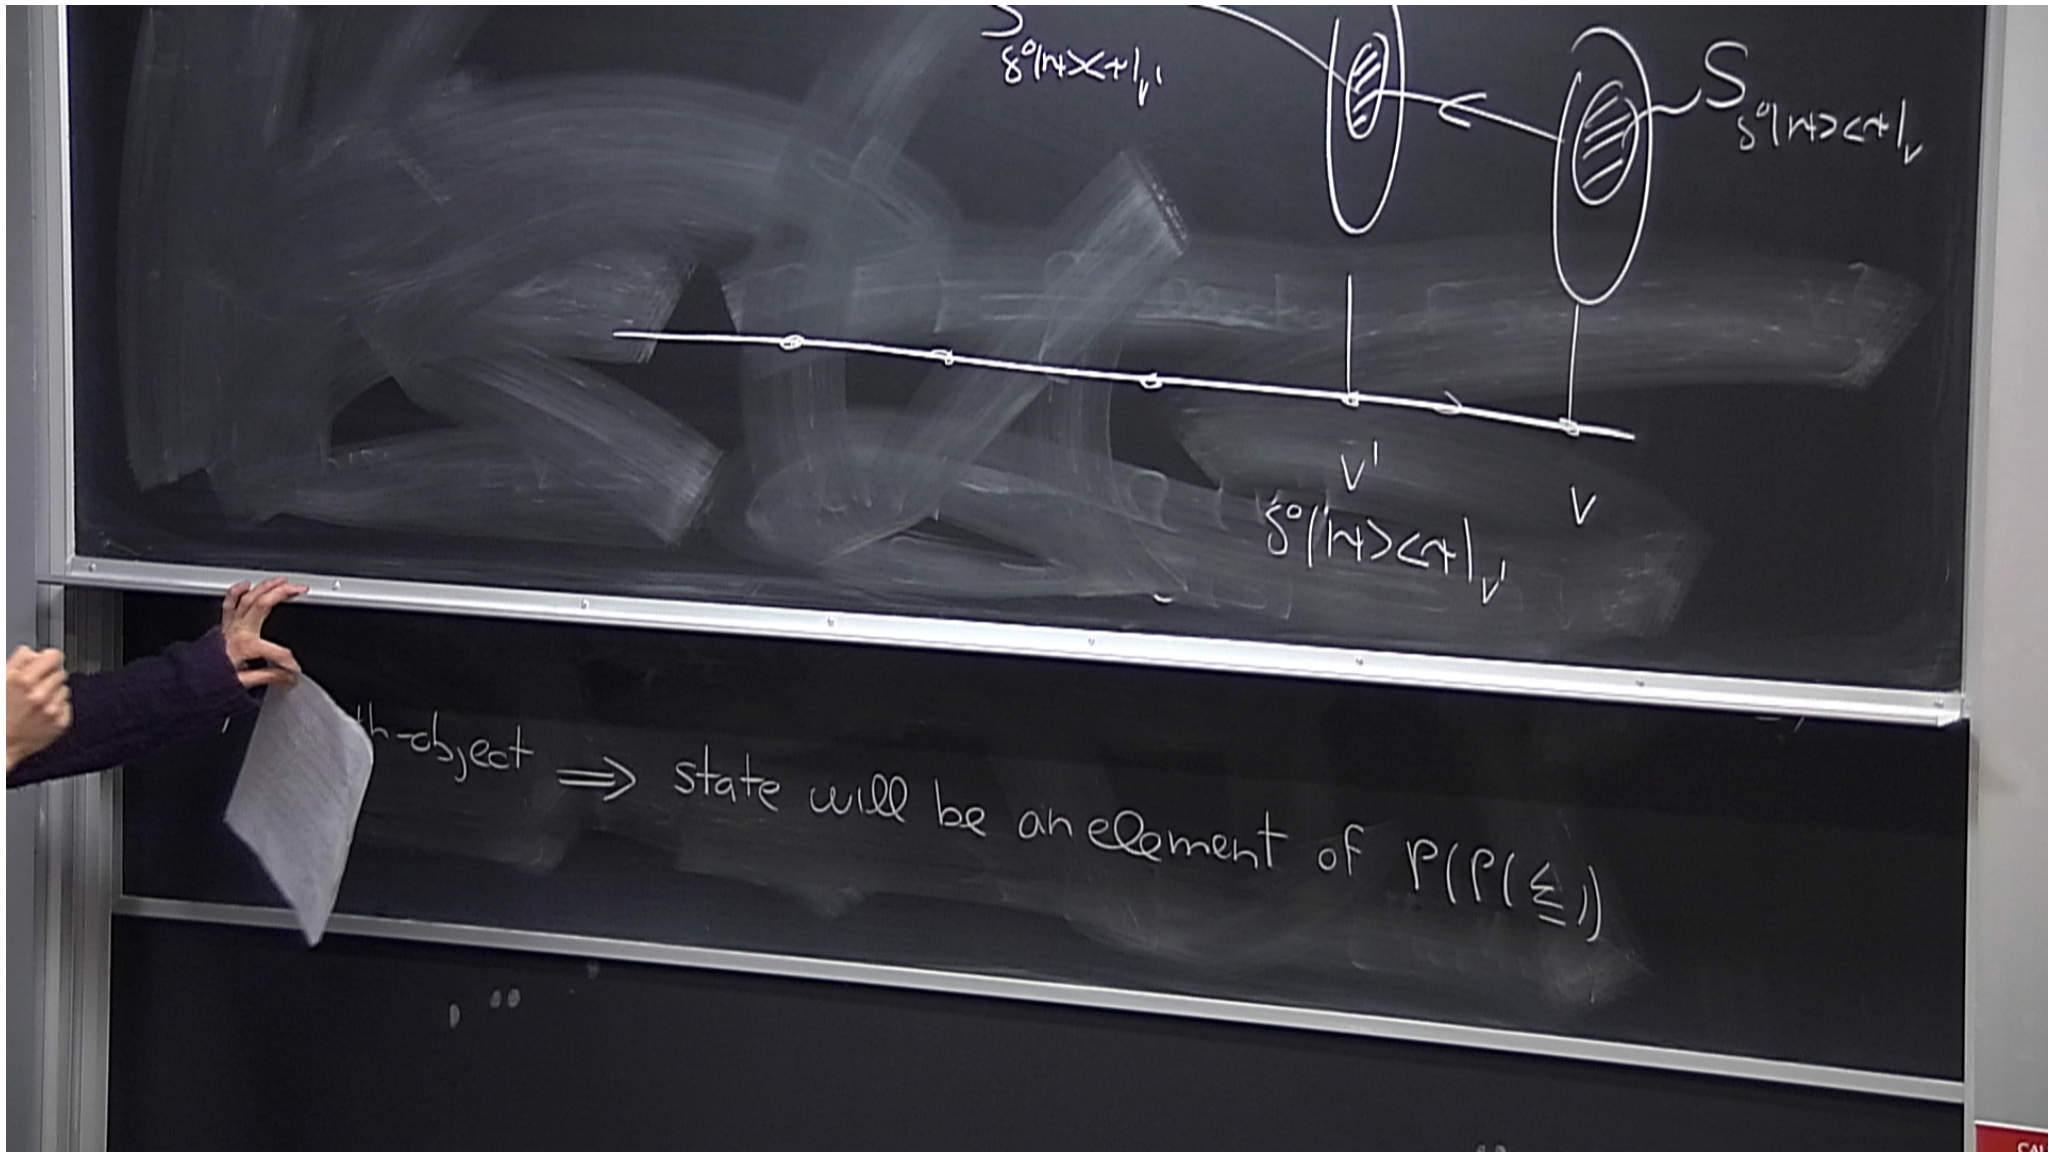 S
δ°(|ψ><ψ|)_V'
S
δ°(|ψ><ψ|)_V
V'
V
δ°(|ψ><ψ|)_V'
th-object ⟹ state will be an element of P(P(Σ))
CAU